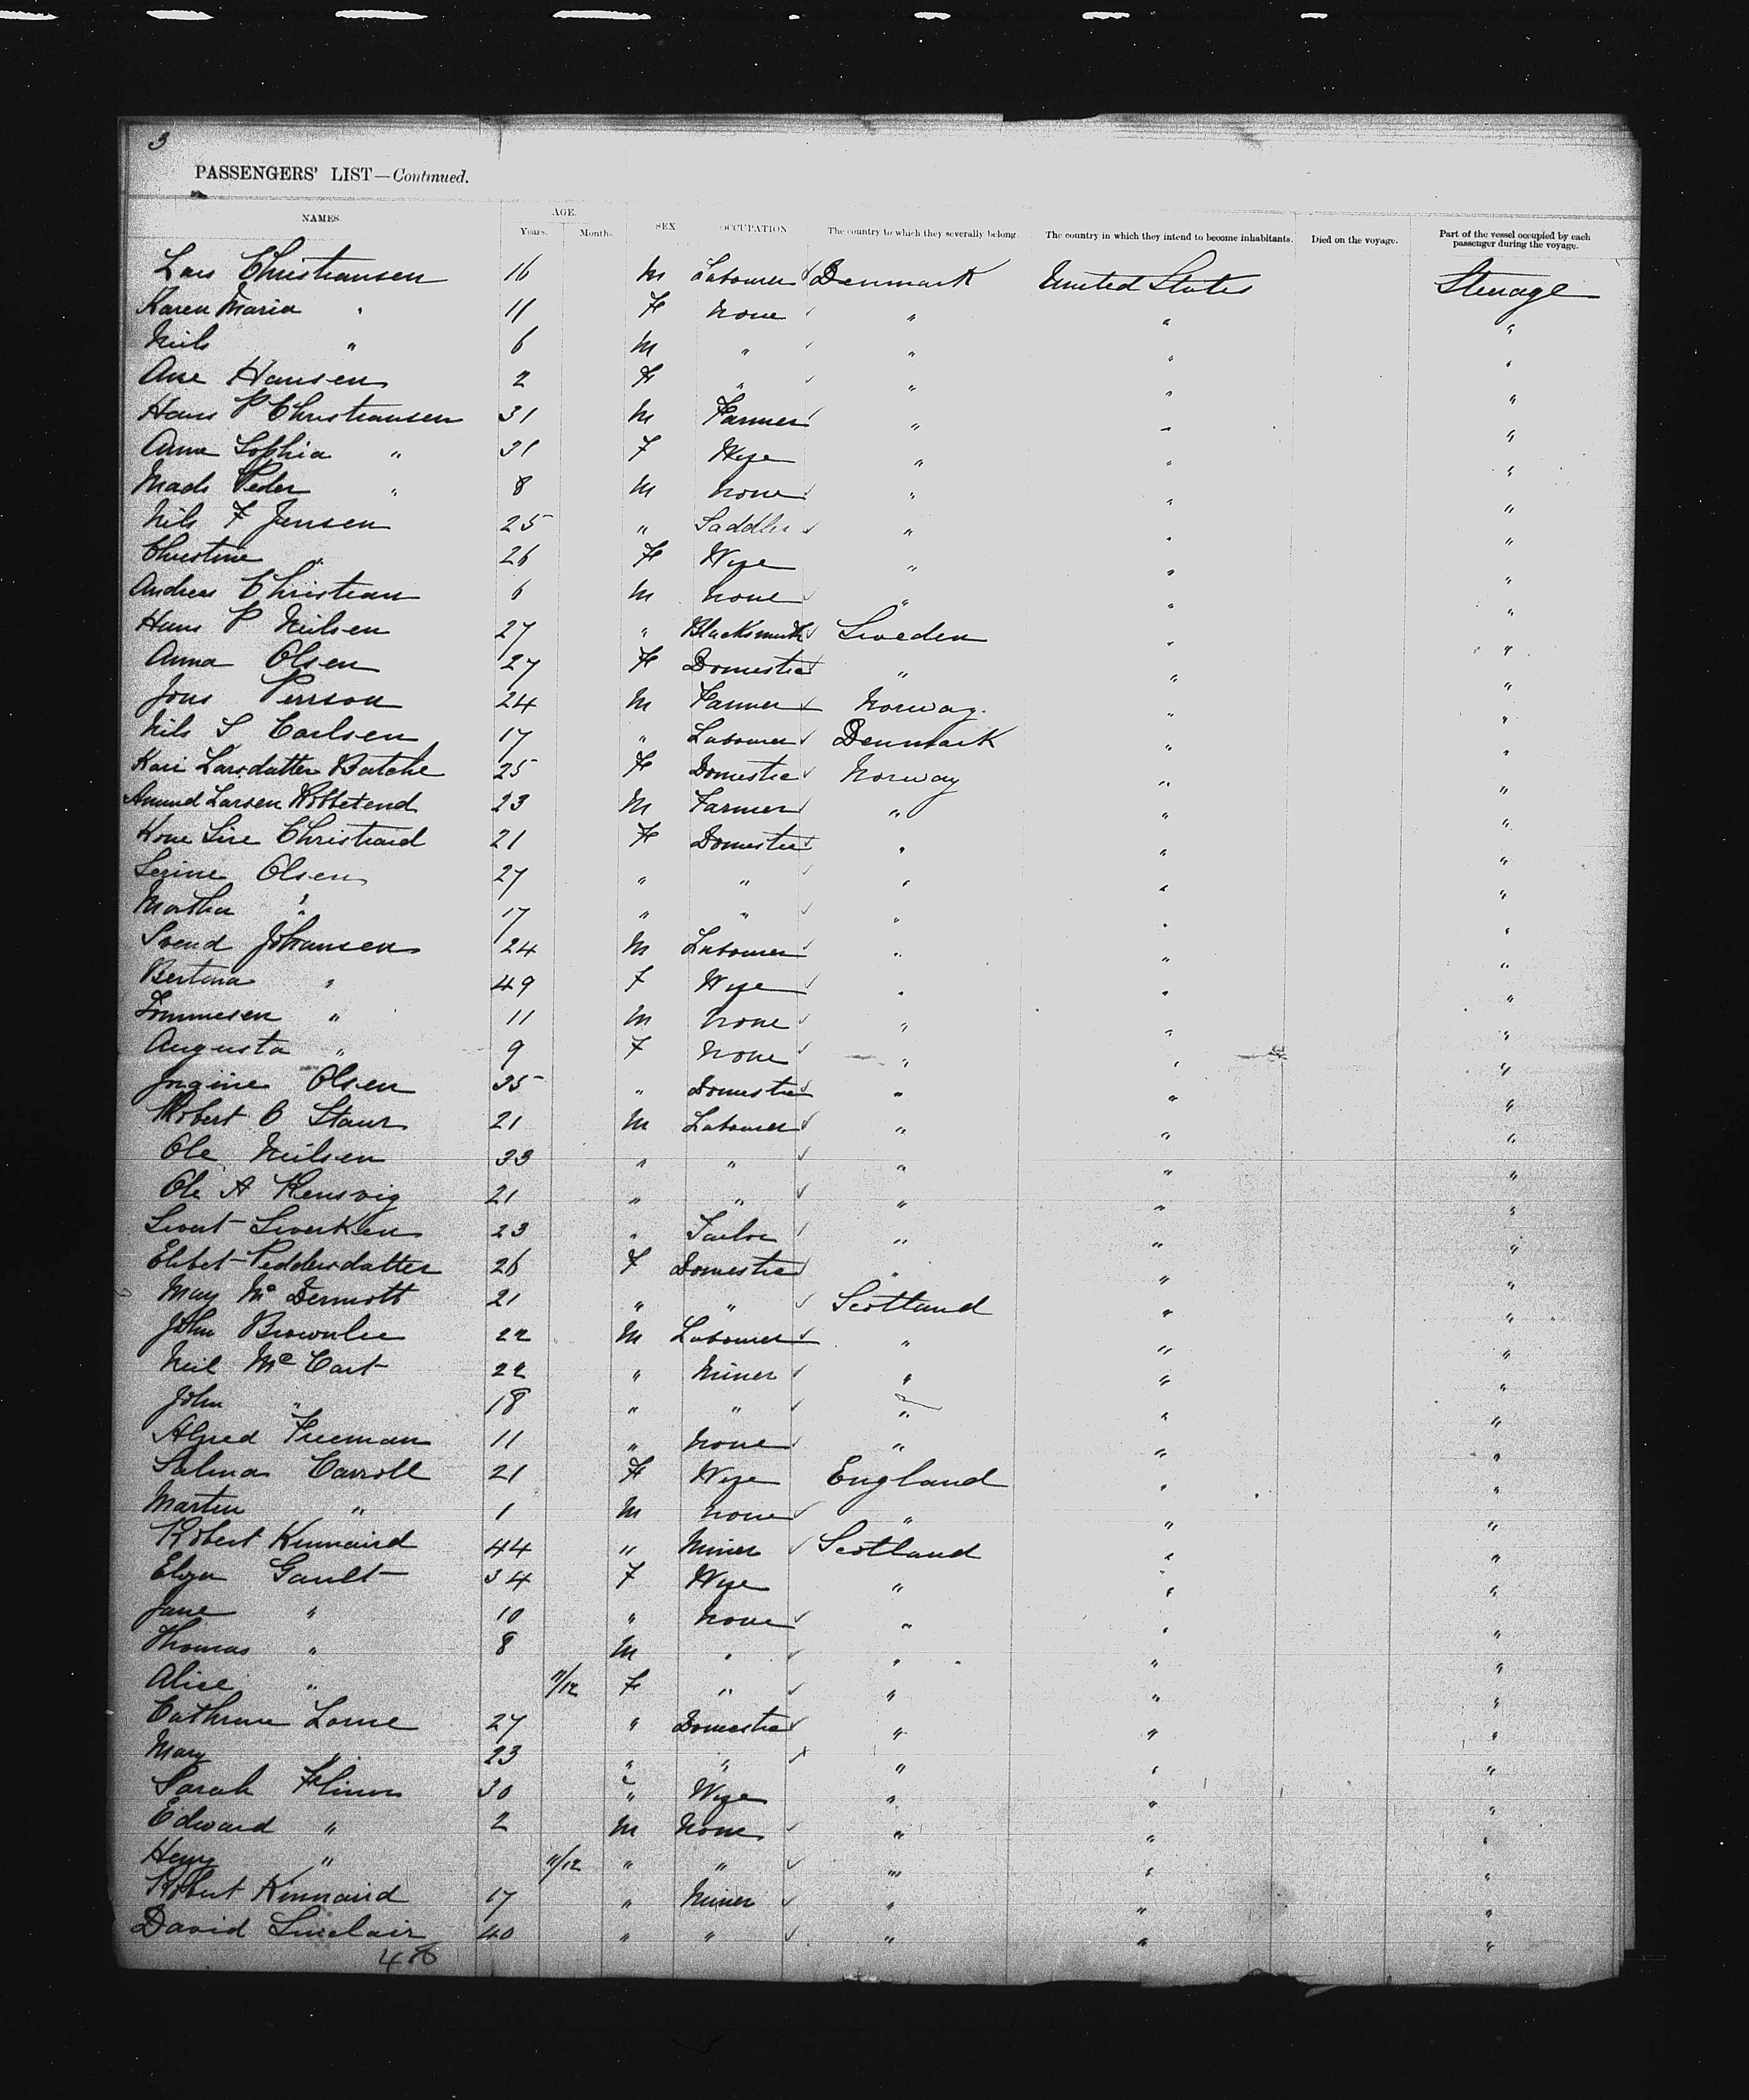 3
PASSENGERS' LIST—Continued.
NAMES. AGE. Years. Months. SEX OCCUPATION The country to which they severally belong. The country in which they intend to become inhabitants. Died on the voyage. Part of the vessel occupied by each passenger during the voyage.
Lars Christiansen 16 M Labourer Denmark United States Steerage
Karen Maria " 11 F None " " "
Niels " 6 M " " " "
Ane Hansen 2 F " " " "
Hans P Christiansen 31 M Farmer " " "
Anna Sophia " 31 F Wife " " "
Mads Peder " 8 M None " " "
Nils F Jensen 25 " Saddler " " "
Christine " 26 F Wife " " "
Andreas Christian 6 M None " " "
Hans P Neilsen 27 " Blacksmith Sweden " "
Anna Olsen 27 F Domestic " " "
Jons Persson 24 M Farmer Norway. " "
Nils S Carlsen 17 " Labourer Denmark " "
Kari Larsdatter Batche 25 F Domestic Norway " "
Amund Larsen 23 M Farmer " " "
Christiand 21 F Domestic " " "
Serine Olsen 27 " " " " "
Martha " 17 " " " " "
Svend Johansen 24 M Labourer " " "
Bertina " 49 F Wife " " "
Tommesen " 11 M None " " "
Augusta " 9 F None " " "
Jorgine Olsen 35 " Domestic " " "
Robert O Staur 21 M Labourer " " "
Ole Neilsen 33 " " " " "
Ole A Rensvig 21 " " " " "
Sivert Siverksen 23 " Tailor " " "
Elibet Peddersdatter 26 F Domestic " " "
Mary McDermott 21 " " Scotland " "
John Brownlee 22 M Labourer " " "
Neil McCart 22 " Miner " " "
John " 18 " " " " "
Alfred Freeman 11 " None " " "
Salina Carroll 21 F Wife England " "
Martin " 1 M None " " "
Robert Kinnaird 44 " Miner Scotland " "
Eliza Gault 34 F Wife " " "
Jane " 10 " None " " "
Thomas " 8 M " " " "
Alice " 11/12 F " " " "
Cathrine Lorne 27 " Domestic " " "
Mary " 23 " " " " "
Sarah Flinn 30 " Wife " " "
Edward " 2 M None " " "
Henry " 11/12 " " " " "
Robert Kinnaird 17 " Miner " " "
David Sinclair 40 " " " " "
48